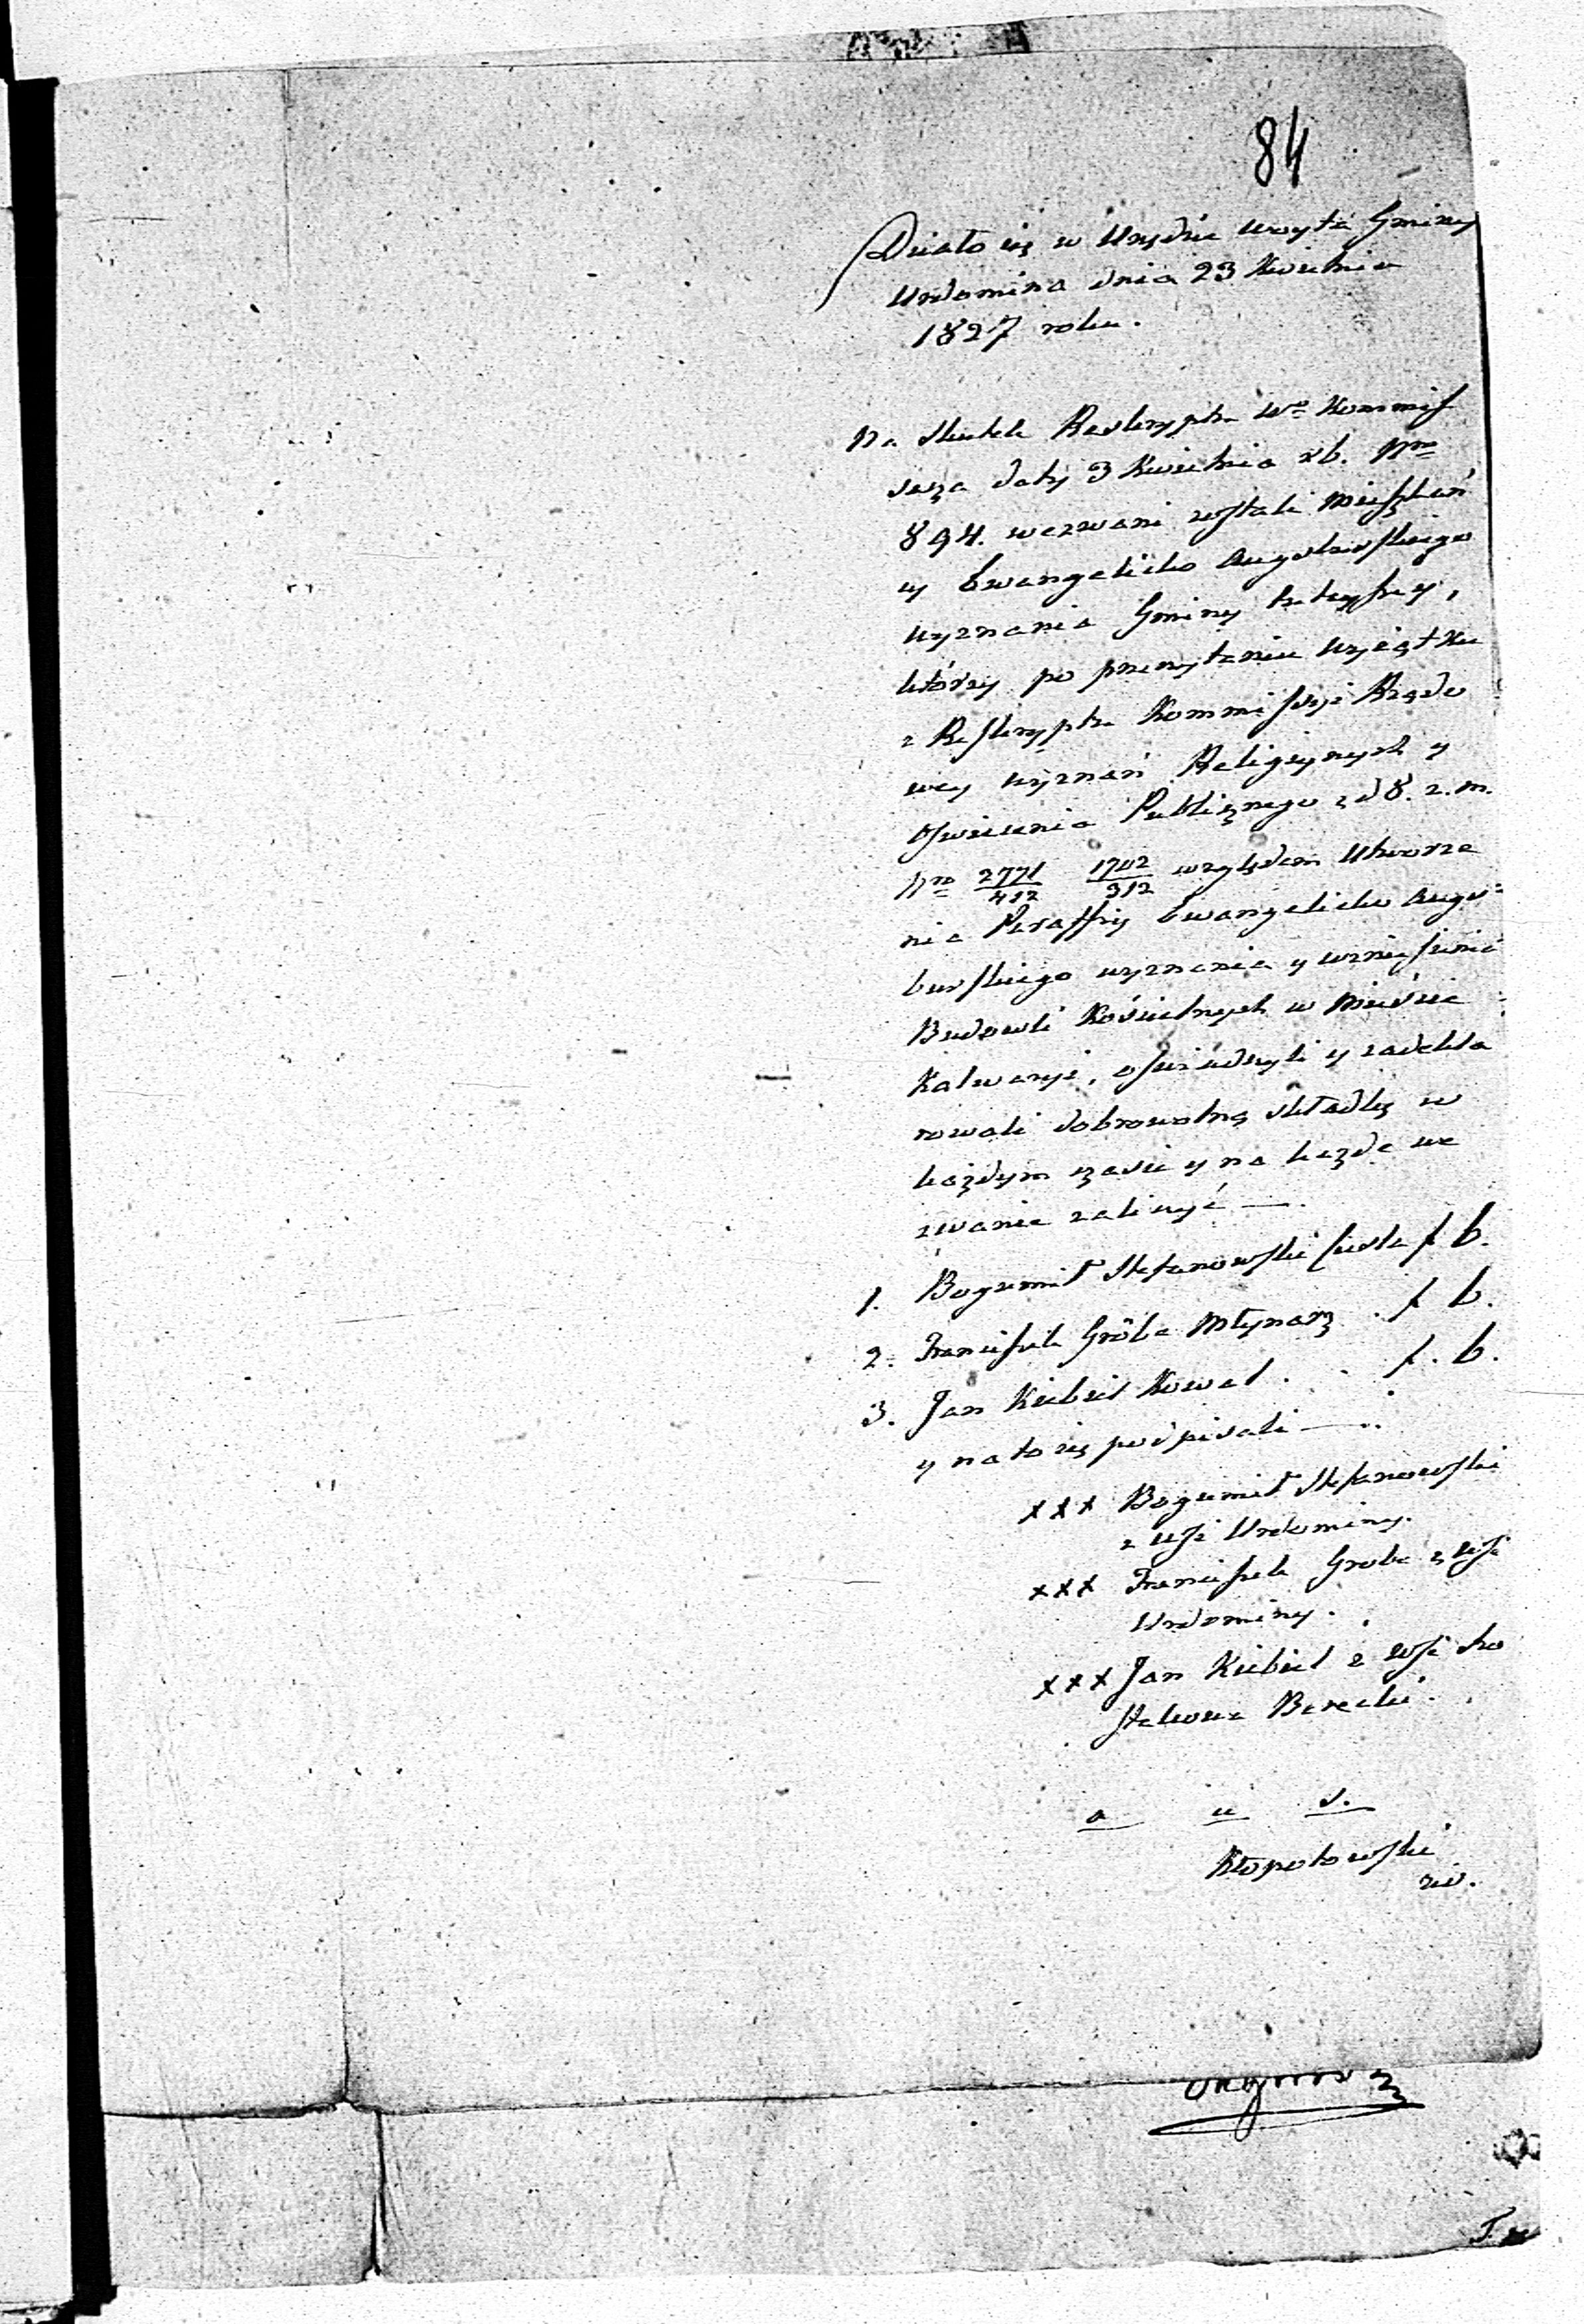 84
Działo się w Urzędzie Woyta Gminy
Urdomina dnia 23 Kwietnia
1827 roku.
Na skutek Reskryptu Wo Kommis
sarza daty 3 Kwietnia rb. Nro
894. wezwani zostali Mieszkań
cy Ewangelicko Augsburskiego
wyznania Gminy tuteyszey,
którzy po przeczytaniu wyiątku
z Reskryptu Kommissyi Rządo
wey wyznań Religiynych y
Oświecenia Publicznego z d 8. z. m.
Nro 2771/412 1702/312 względem Utworze
nia Paraffij Ewangelicko Augs=
burskiego wyznania y wzniesienia
Budowli Kościelnych w Mieście
Kalwaryi, oświadczyli y zadekla
rowali dobrowolną składkę w
każdym czasie y na każde we
zwanie zaliczyć —.
1. Bogumił Stefanowski Cieśla f 6.
2. Franciszek Gróbe Młynarz . f 6.
3. Jan Kiebiel Kowal . . f. 6.
y na to się podpisali —..
xxx Bogumił Stefanowski
z wsi Urdominy.
xxx Franciszek Grobe z wsi
Urdominy.
xxx Jan Kiebiel z wsi
a u s.
Kłopotowski